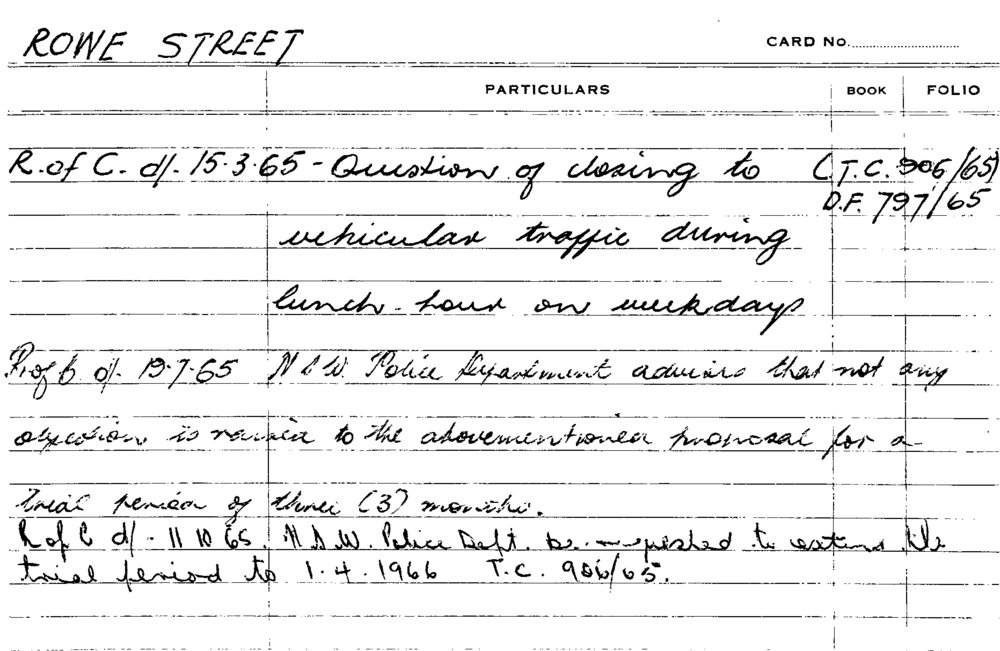 ROWE STREET CARD No.
PARTICULARS BOOK FOLIO
R. of C. d/. 15.3.65 - Question of closing to (T.C. 906/65)
D.F. 797/65
vehicular traffic during
lunch-hour on weekdays
R of C d/. 19.7.65 N S W. Police Department advising that not any
objection is raised to the abovementioned proposal for a
trial period of three (3) months.
R of C d/. 11 10 65. N.S.W. Police Dept. be requested to extend the
trial period to 1.4.1966 T.C. 906/65.